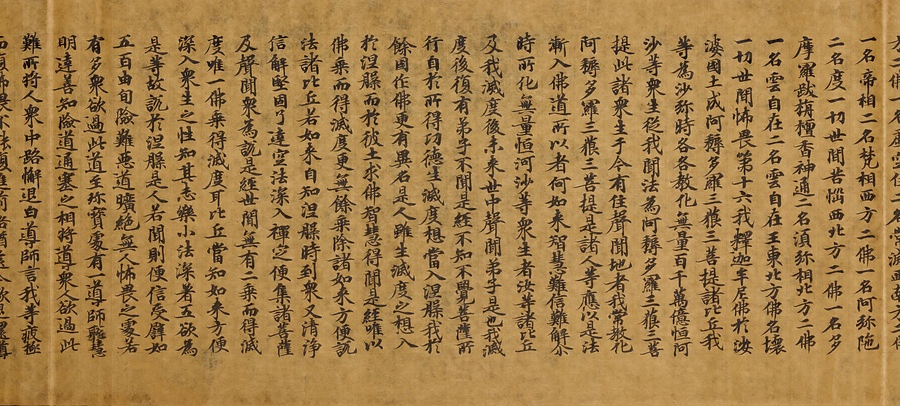 一名帝相二名梵相西方二佛一名阿弥陁
二名度一切世間苦惱西北方二佛一名多
摩羅跋栴檀香神通二名須弥相北方二佛
一名雲自在二名雲自在王東北方佛名壞
一切世間怖畏第十六我釋迦牟尼佛於娑
婆國土成阿耨多羅三藐三菩提諸比丘我
等為沙弥時各各教化無量百千萬億恒河
沙等衆生從我聞法為阿耨多羅三藐三菩
提此諸衆生于今有住聲聞地者我常教化
阿耨多羅三藐三菩提是諸人等應以是法
漸入佛道所以者何如來智慧難信難解尒
時所化無量恒河沙等衆生者汝等諸比丘
及我滅度後未來世中聲聞弟子是也我滅
度後復有弟子不聞是經不知不覺菩薩所
行自於所得功德生滅度想當入涅槃我於
餘國作佛更有異名是人雖生滅度之想入
於涅槃而於彼土求佛智慧得聞是經唯以
佛乘而得滅度更無餘乘除諸如來方便說
法諸比丘若如來自知涅槃時到衆又清淨
信解堅固了達空法深入禪定便集諸菩薩
及聲聞衆為說是經世間無有二乘而得滅
度唯一佛乘得滅度耳比丘當知如來方便
深入衆生之性知其志樂小法深著五欲為
是等故說於涅槃是人若聞則便信受譬如
五百由旬險難惡道曠絶無人怖畏之處若
有多衆欲過此道至珍寶處有一導師聰慧
明達善知險道通塞之相將導衆人欲過此
難所將人衆中路懈退白導師言我等疲極